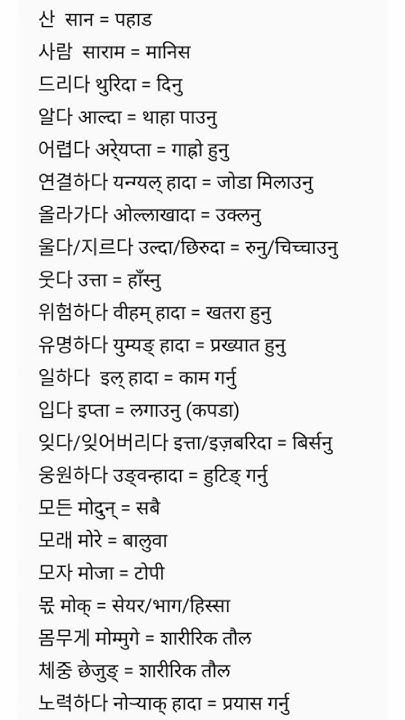 산 सान = पहाड
사람 साराम = मानिस
드리다 थुरिदा = दिनु
알다 आल्दा = थाहा पाउनु
어렵다 अरेृयप्ता = गाह्रो हुनु
연결하다 यन्ग्यल् हादा = जोडा मिलाउनु
올라가다 ओल्लाखादा = उक्लनु
울다/지르다 उल्दा/छिरुदा = रुनु/चिच्चाउनु
웃다 उत्ता = हाँस्नु
위험하다 वीहम् हादा = खतरा हुनु
유명하다 युम्यङ् हादा = प्रख्यात हुनु
일하다 इल् हादा = काम गर्नु
입다 इप्ता = लगाउनु (कपडा)
잊다/잊어버리다 इत्ता/इज़बरिदा = बिर्सनु
웅원하다 उङ्वन्हादा = हुटिङ् गर्नु
모든 मोदुन् = सबै
모래 मोरे = बालुवा
모자 मोजा = टोपी
몫 मोक् = सेयर/भाग/हिस्सा
몸무게 मोम्मुगे = शारीरिक तौल
체중 छेजुङ् = शारीरिक तौल
노력하다 नोऱ्याक् हादा = प्रयास गर्नु